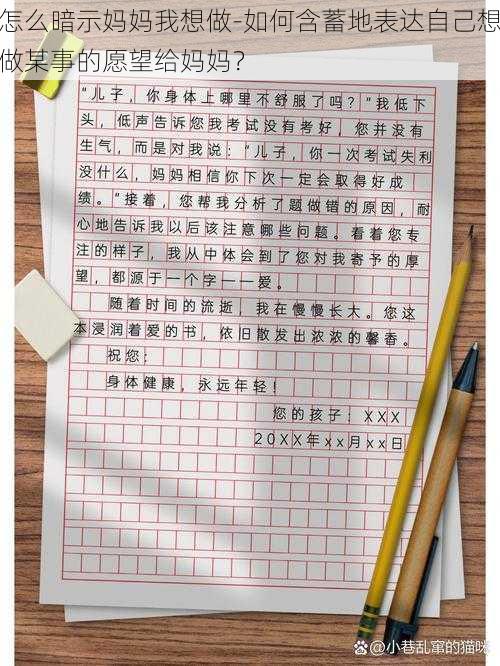 怎么暗示妈妈我想做-如何含蓄地表达自己想
做某事的愿望给妈妈？
“儿子，你身体上哪里不舒服了吗？”我低下
头，低声告诉您我考试没有考好，您并没有
生气，而是对我说：“儿子，你一次考试失利
没什么，妈妈相信你下次一定会取得好成
绩。”接着，您帮我分析了题做错的原因，耐
心地告诉我以后该注意哪些问题。看着您专
注的样子，我从中体会到了您对我寄予的厚
望，都源于一个字——爱。
随着时间的流逝，我在慢慢长大。您这
本浸润着爱的书，依旧散发出浓浓的馨香。
祝您：
身体健康，永远年轻！
您的孩子：XXX
20XX年xx月xx日
@小巷乱窜的猫咪